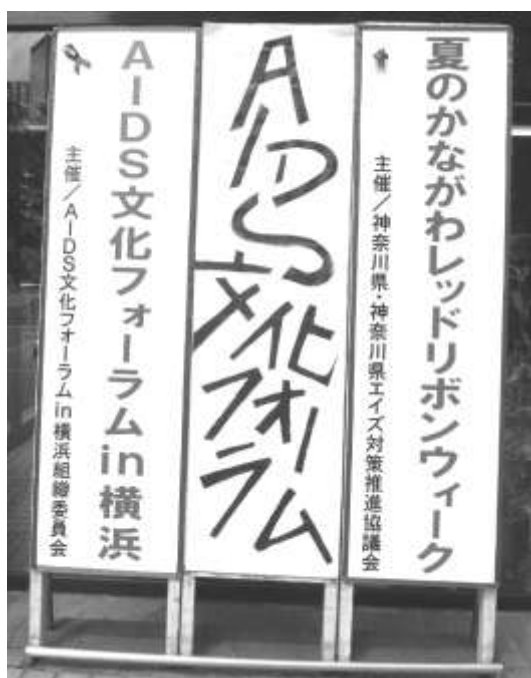 夏のかながわレッドリボンウィーク
主催／神奈川県・神奈川県エイズ対策推進協議会
AIDS文化フォーラム
AIDS文化フォーラムin横浜
主催／AIDS文化フォーラムin横浜組織委員会